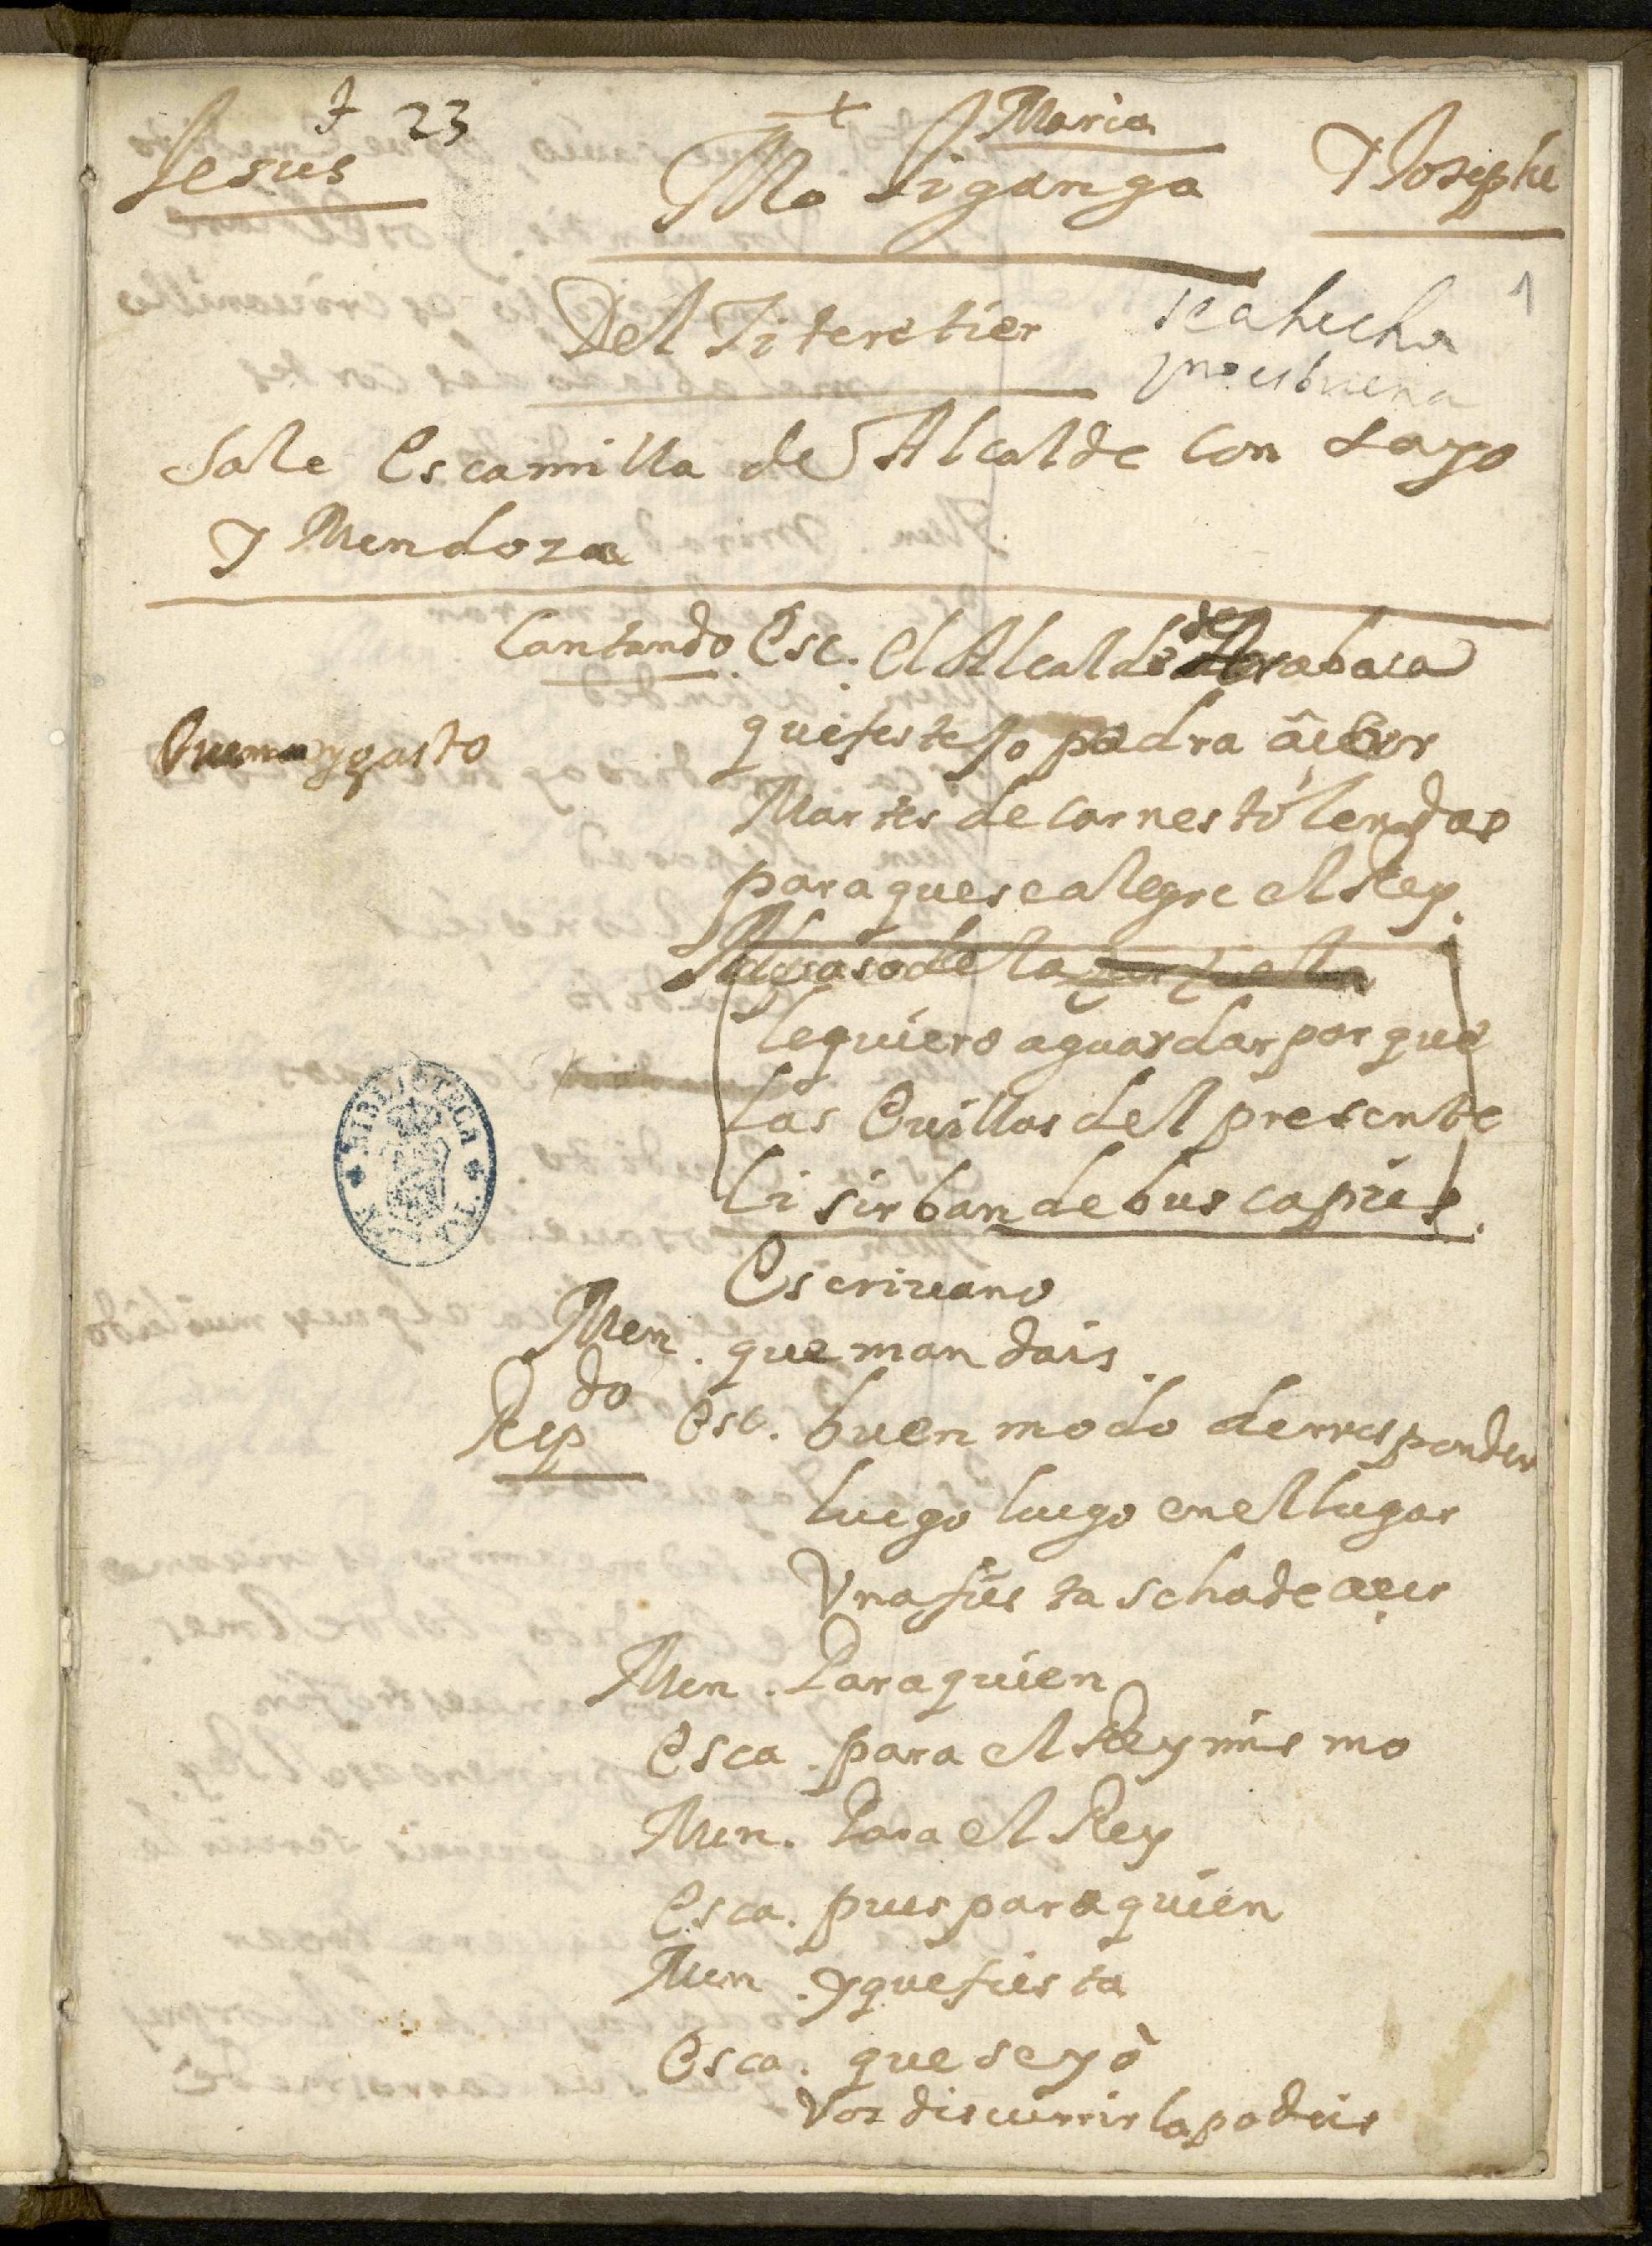 J 23
Jesus + Maria Y Josephe
Mo Jiganga
Del Titeretier
se a hecha
y no es buena
1
Sale Escamilla de Alcalde Con Sayo
Y Mendoza
Cantando Esc. El Alcalde de Arabaca
que festejo podra aüer
Martes de Carnestolendas
para que se alegre el Rey.
le quiero aguardar por que
las Cuillas del presente
li sirban de buscapies.
Escriuano
Men. que mandais.
Rep do Esc. buen modo de rresponder
luego luego en el lugar
Vna fiesta se ha de aüer
Men. Para quien
Esca. para el Rey mismo
Men. Para el Rey
Esca. pues para quien
Men. y que fiesta
Esca. que se yo
Vos discurrir la podeis
BIBLIOTECA